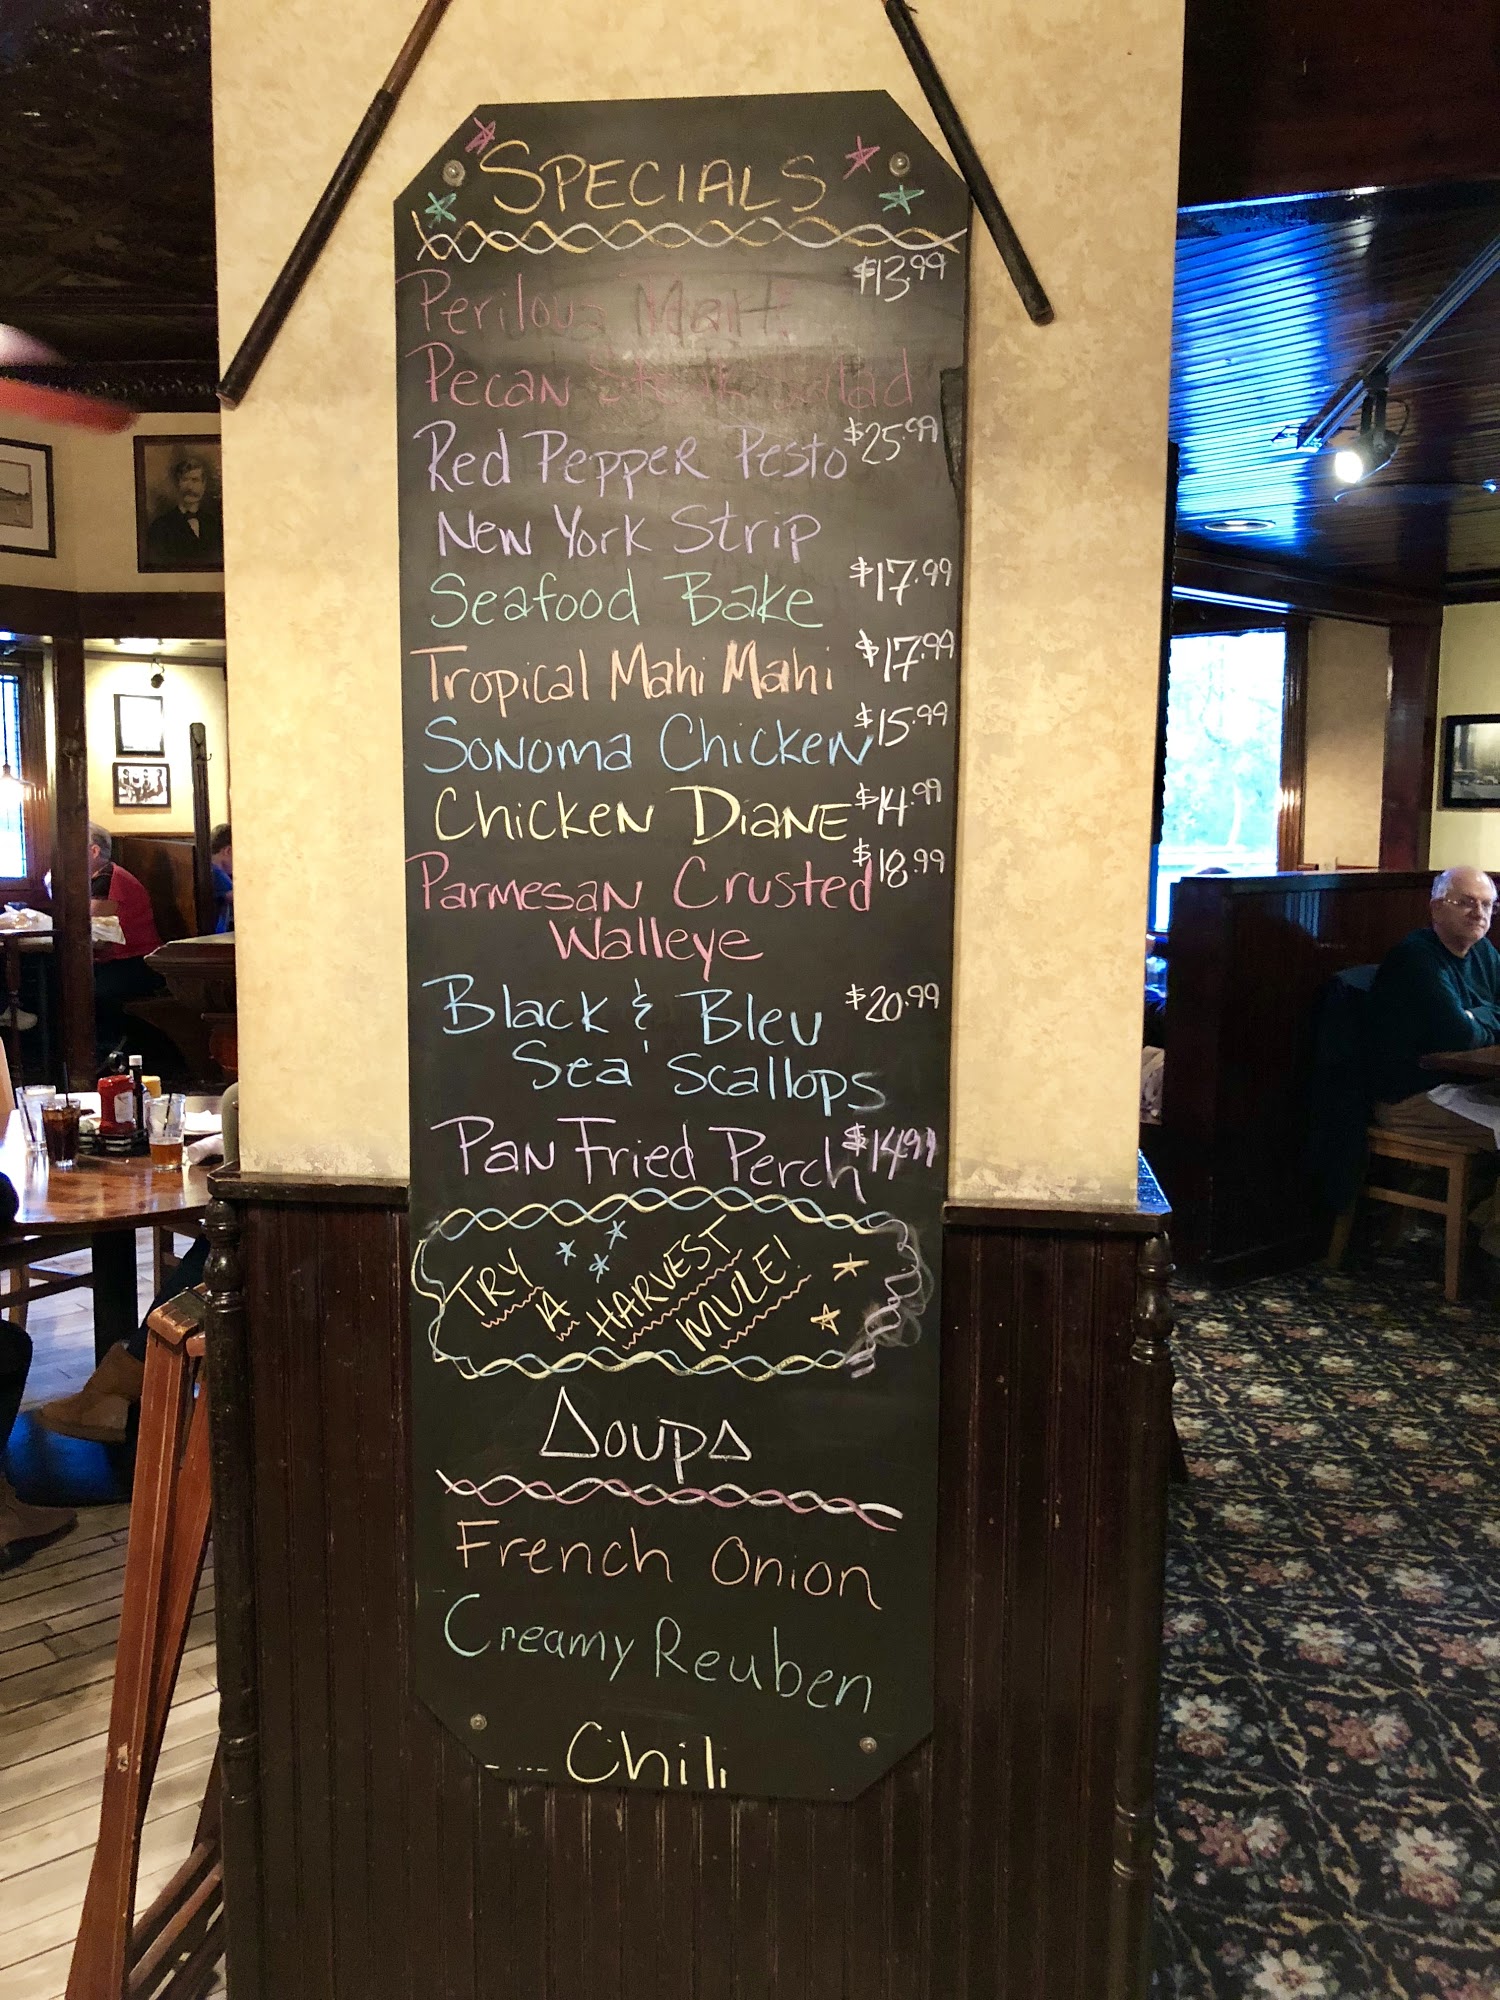 SPECIALS
Perilous $13.99
Pecan Steak Salad
Red Pepper Pesto $25.99
New York Strip
Seafood Bake $17.99
Tropical Mahi Mahi $17.99
Sonoma Chicken $15.99
Chicken Diane $14.99
Parmesan Crusted $18.99
Walleye
Black & Bleu $20.99
Sea Scallops
Pan Fried Perch $14.99
TRY A HARVEST MULE!
Soups
French Onion
Creamy Reuben
Chili